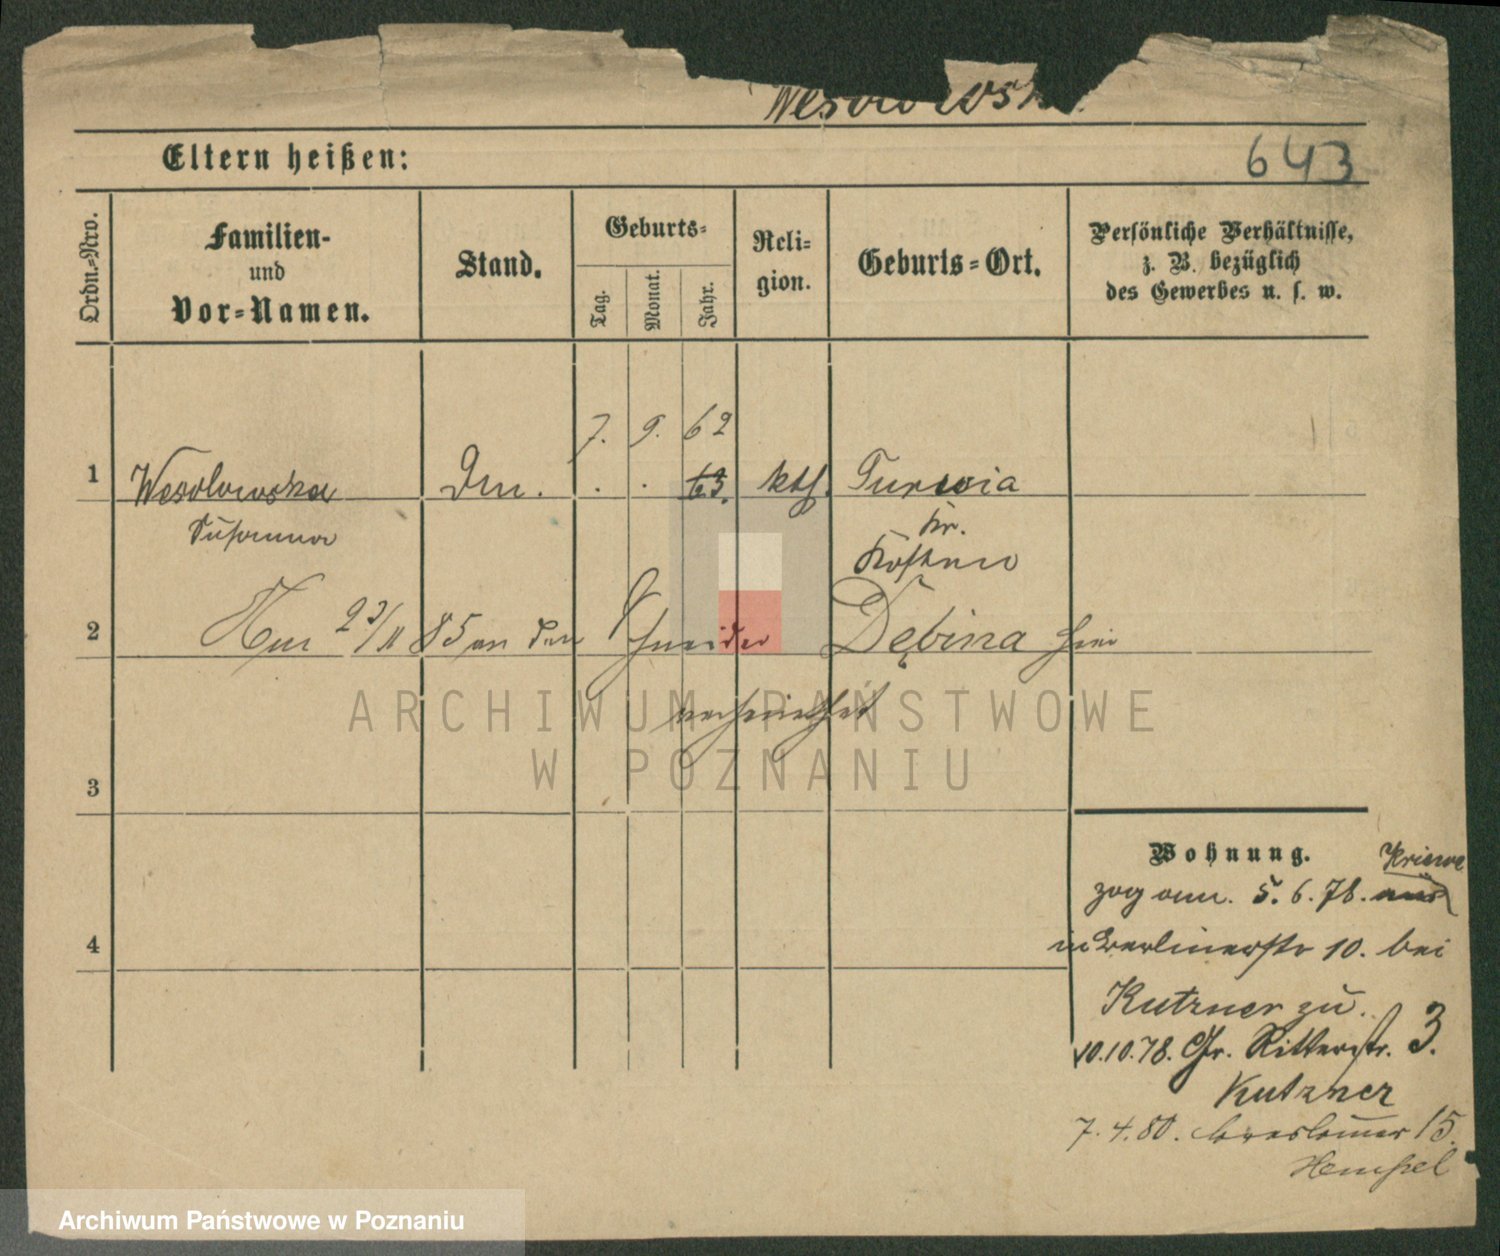 Wesolowska
Eltern heißen:
643
Ordn.-Nro.
Familien-
und
Vor-Namen.
Stand.
Geburts-
Tag.
Monat.
Jahr.
Reli-
gion.
Geburts-Ort.
Persönliche Verhältnisse,
z. B. bezüglich
des Gewerbes u. s. w.
7. 9. 62
1 Wesolowska Dm. . . 63. kth. Turwia
Susanna Kr.
Kosten
2 23/11 85 an den Schneider Dębina hier
verheirathet
ARCHIWUM PAŃSTWOWE
W POZNANIU
3
4
Wohnung.
Kriewe
zog am. 5.6.78. aus
in Berlinerstr 10. bei
Kutzner zu.
10.10.78. Gr. Ritterstr. 3.
Kutzner
7.4.80. Breslauer 15.
Hempel
Archiwum Państwowe w Poznaniu